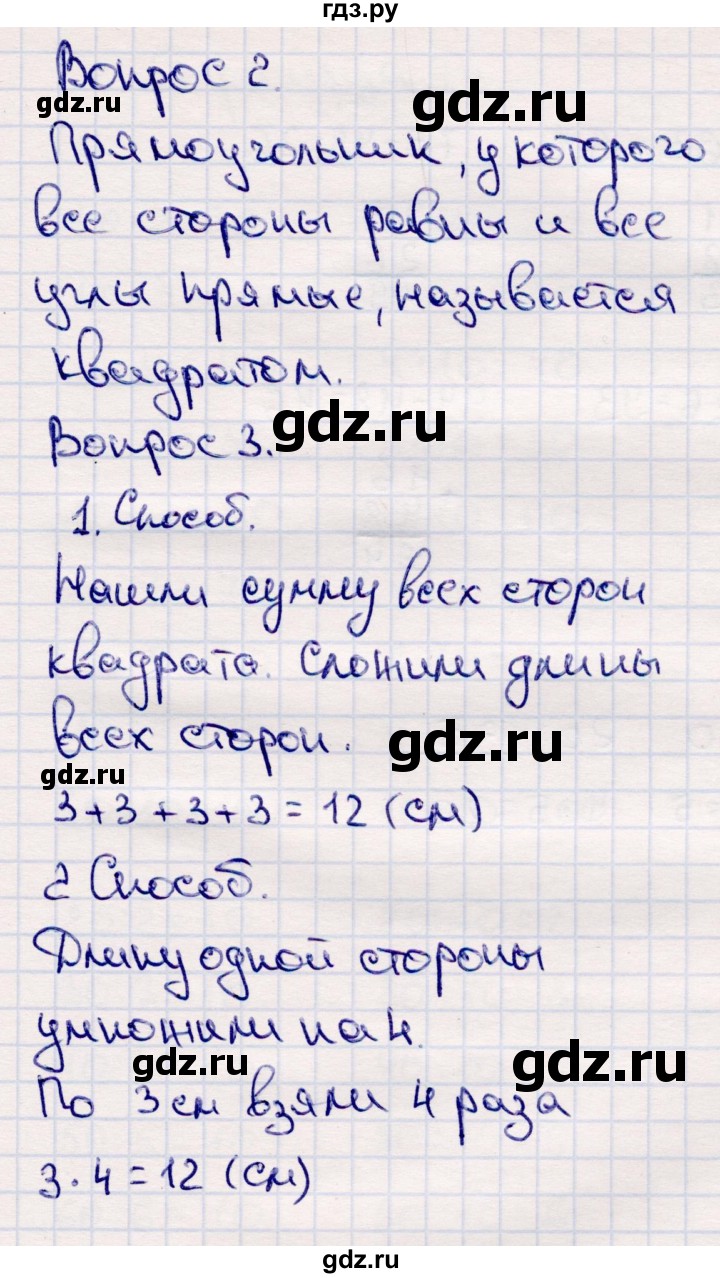 гдз.ру
Вопрос 2.
gdz.ru
gdz.ru
Прямоугольник, у которого
все стороны равны и все
углы прямые, называется
квадратом.
gdz.ru
Вопрос 3.
1. Способ.
Нашли сумму всех сторон
квадрата. Сложили длины
всех сторон.
gdz.ru
gdz.ru
3+3+3+3=12 (см)
2 Способ.
Длину одной стороны
умножили на 4.
gdz.ru
gdz.ru
По 3 см взяли 4 раза
3·4=12 (см)
gdz.ru